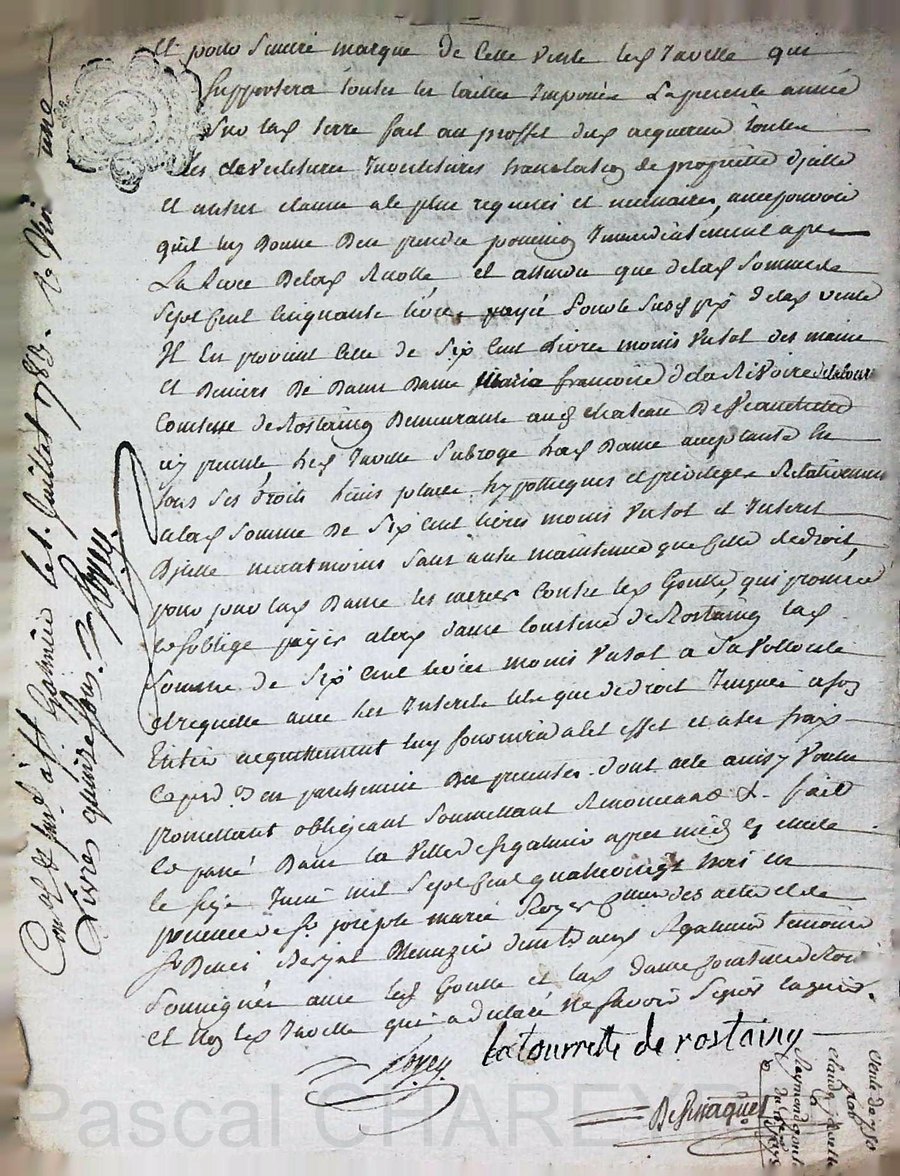 et pour Surcré marque de Cette vente led Tavelle qui
Supportera toutes les tailles Imposées La presente année
Sur lad terre fait au proffit dud acquereur toutes
les devestitures Investitures translation de proprietté d'jcelle
Et autres clauses a le plus requises et necessaires, avec pouvoir
quil luy Donne D'en prendre possession Immediatement apres
La de lad Recolte et attendu que de lad Somme de
Sept Cent Cinquante livres payée pour le Susd prix de lad vente
Il En provient Celle de Six Cent livres moins Un Sol des mains
Et Deniers De Dame Dame Maria francoise de la Rivoire de la tour
Comtesse de Rostaing Demeurante aud chateau De Veauchette
icy presente, led Tavelle Subroge lad Dame acceptante En
tous Ses droits lieux place, hypotheques et privileges Relativement
a lad Somme De Six Cent livres moins Un Sol et Interet
D'jcelle neantmoins Sans autre maintenue que Celle de droit,
pour par lad Dame les Exercer Contre led Goutte, qui promet
et S'oblige payer a lad dame Comtesse de Rostaing lad
Somme de Six Cent livres moins Un Sol a Sa Volonté
et requette avec les Interets tels que de droit Jusques a son
Entier acquittement luy fournira a cet effet et a ses frais
Expedon en parchemin Des presentes. Dont acte ainsy Voulu
promettant obligeant Soumettant Renonceant &. fait
et passé Dans la Ville de St galmier apres midy
le Seize Juin mil Sept Cent quatre vingt trois en
presence de Sr joseph marie Royer Comre des actes et de
Sr Denis Menuzier dmts aud St galmier temoins
Soussignés avec led Goutte et lad dame Comtesse de Rost
Et non led Tavelle qui a déclaré Ne Savoir Signer Enquis.
latourrette de rostaing
Royer
Con lé & Ins. a St Galmier le 1. Juillet 1783. R. Dix une
Livres quinze Sous. Royer
Vente de 750